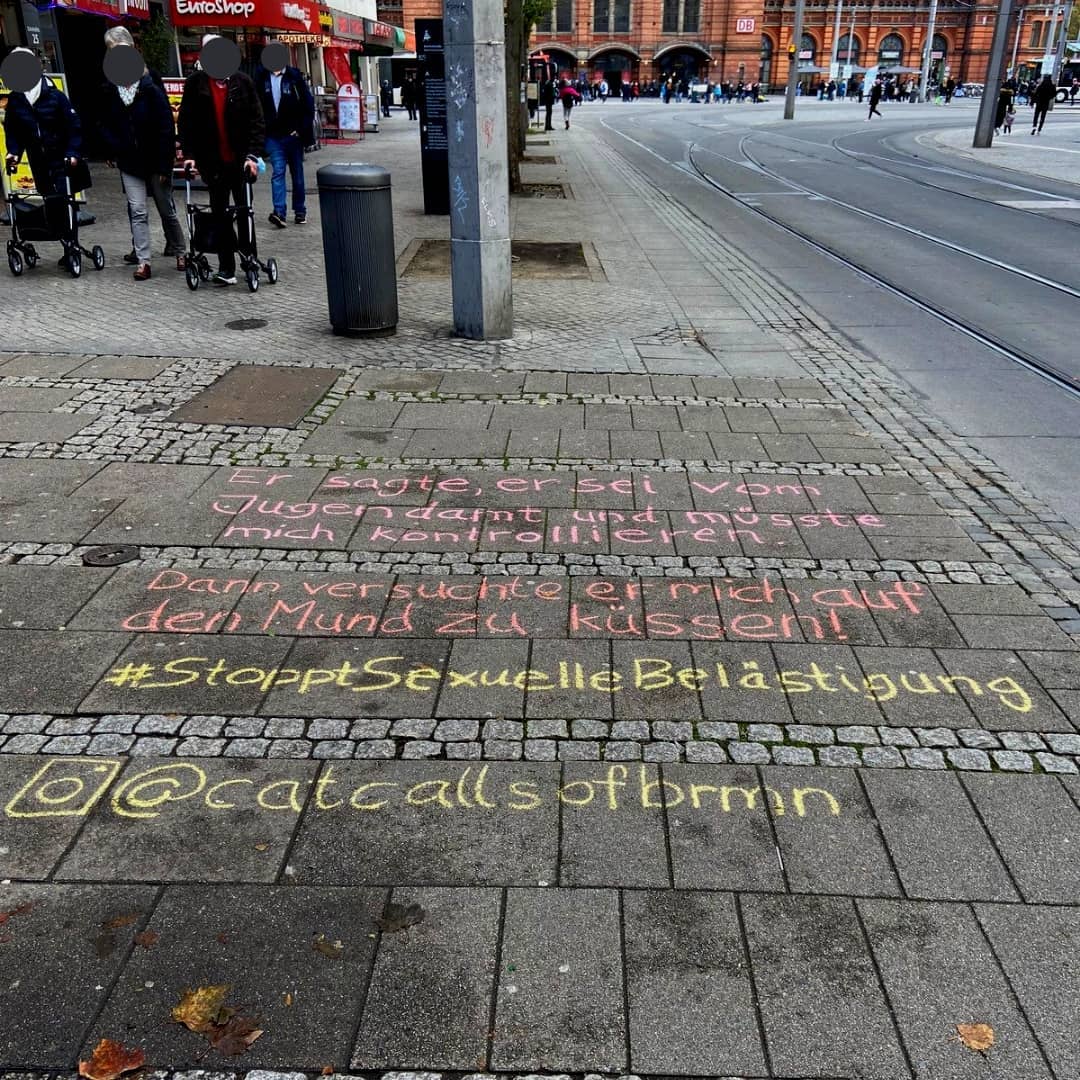 EUROSHOP
APOTHEKE
DB
25
Er sagte, er sei vom
Jugendamt und müsste
mich kontrollieren.
Dann versuchte er mich auf
den Mund zu küssen!
#StopptSexuelleBelästigung
@catcallsofbrmn